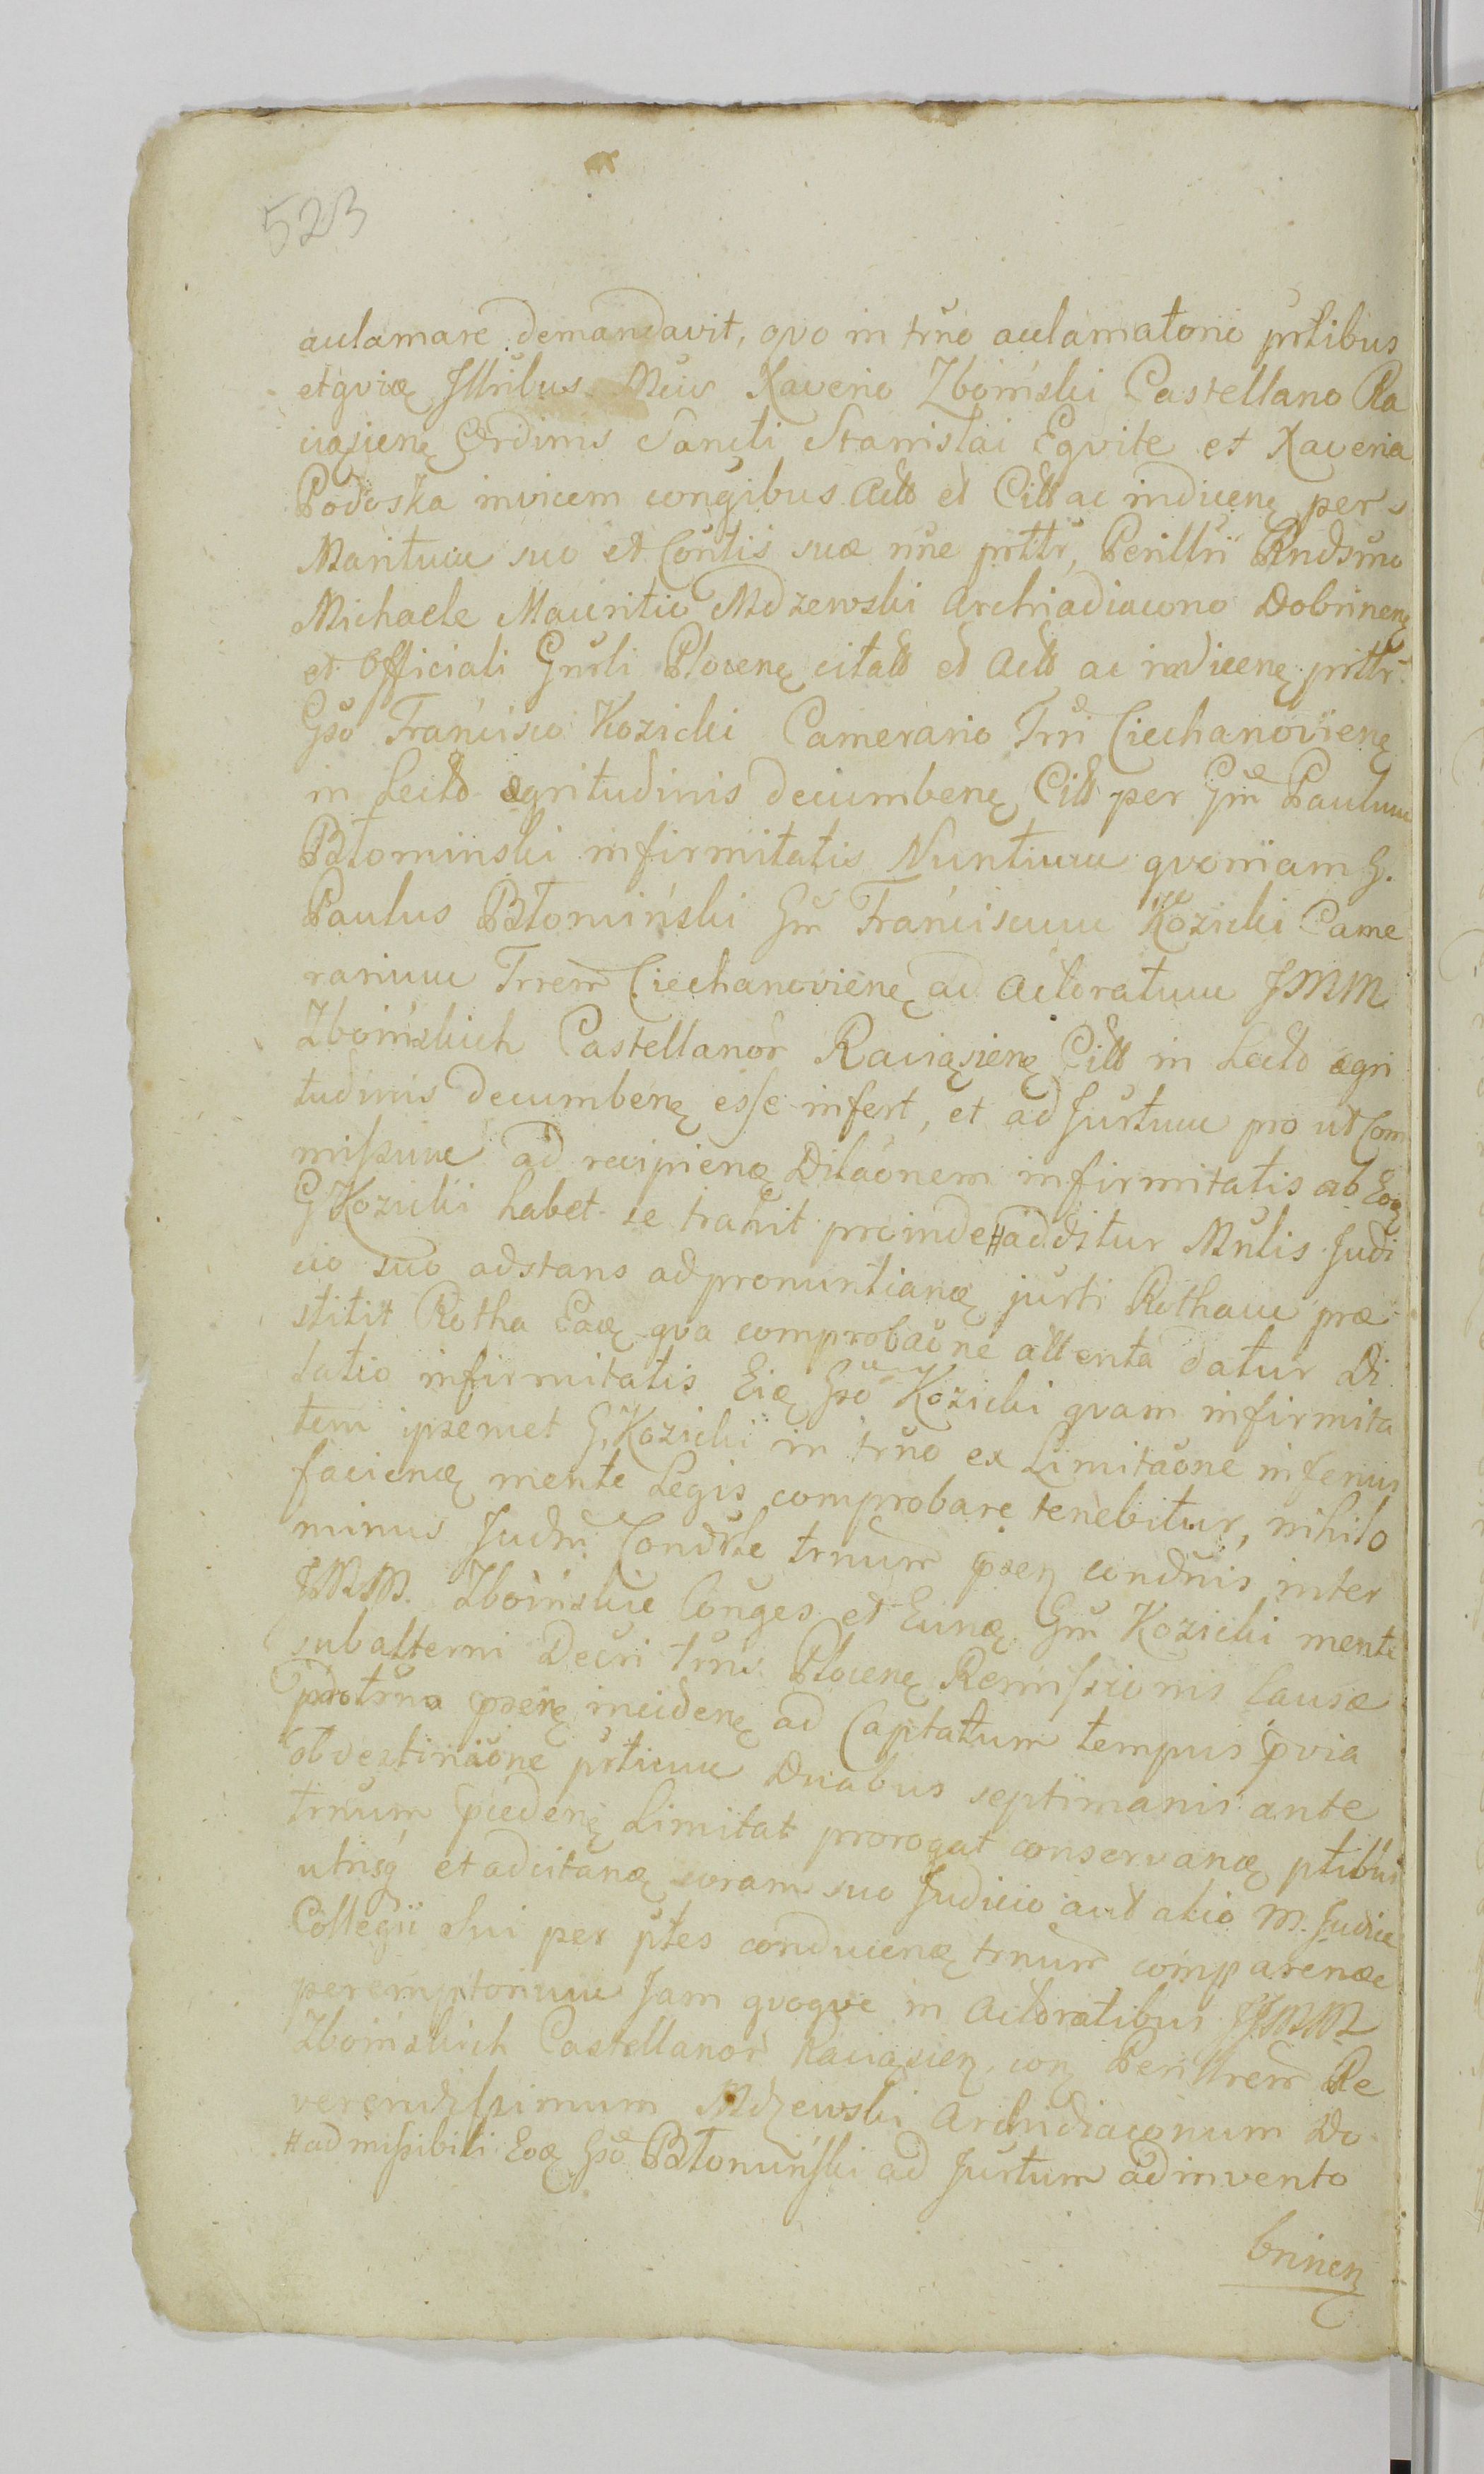 523
acclamare demandavit, qvo in trno acclamatorio prtibus
etqvidę Jllribus Mcis Xaverio Zboiński Castellano Ra
ciąsienę Ordinis Sancti Stanislai Eqvite et Xaveria
Podoska invicem congibus Actt et Citt ac indicenę per
Maritum suo et Contis suæ nne prttr, Perilltri Rndsmo
Michaele Mauritio Mdzewski Archiadiacono Dobrinenę
et Officiali Gnrli Plocenę citatt et Actt ac indicenę prttr
Gso Francisco Kozicki Camerario Trri Ciechanovienę
in Lecto ægritudinis decumbenę Citt per Gm Paulum
Błominski infirmitatis Nuntium qvoniam G.
Paulus Błomiński Gm Franciscum Kozicki Came
rarium Trrem Ciechanovienę ad Actoratum JMM
Zboinskich Castellanor Raciąsienę Citt in Lecto ægri
tudinis decumbenę esse infert, et ad Jurtum pro ut Com
missum ad recipienę Dilaonem infirmitatis ab Eoę
G Kozicki habet se trahit proinde # additur Mnlis Judi
cio suo adstans ad pronuntianę jurti Rotham præ
stitit Rotha Eaę qva comprobaone attenta datur Di
latio infirmitatis Eię Gso Kozicki qvam infirmita
tem ipsemet G. Kozicki in trno ex Limitaone inferius
facienę mente Legis comprobare tenebitur, nihilo
minus Judm Condrle trnum psen condnis inter
JMM. Zboinskie Conges et Eunę Gm Kozicki mente
subalterni Decri trnis Plocenę Remissionis Causæ
pro trno psenę incidenę ad Captatum tempus qvia
obvestinaone prticum Duabus septimanis ante
trnum pcedenę Limitat prorogat conservanę ptibus
utrisq et adcitanę coram suo Judicio aut alio M. Judice
Collegii Sui per ptes conducenę trnum comparenæ
peremptorium Jam qvoqve in Actoratibus JJMM
Zboinskich Castellanor Raciąsien, con Perilltrem Re
verendissimum Mdzewski Archidiaconum Do
# admissibili Eoę Gso Błomiński ad Jurtum adinvento
brinen